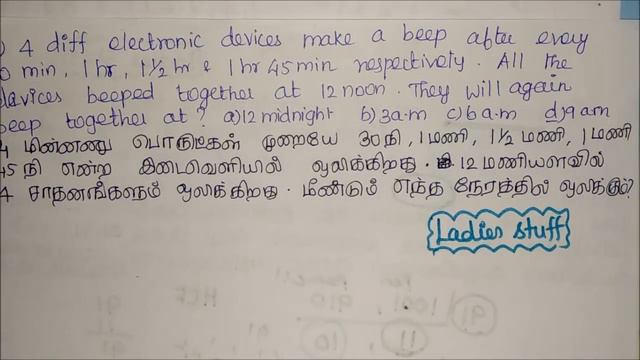 ) 4 diff electronic devices make a beep after every
0 min, 1 hr, 1 1/2 hr & 1 hr 45 min respectively. All the
devices beeped together at 12 noon. They will again
beep together at? a) 12 midnight b) 3 a.m c) 6 a.m d) 9 a.m
4 மின்னணு பொருட்கள் முறையே 30 நி, 1 மணி, 1 1/2 மணி, 1 மணி
45 நி என்ற இடைவெளியில் ஒலிக்கிறது. 12 மணியளவில்
4 சாதனங்களும் ஒலிக்கிறது. மீண்டும் எந்த நேரத்தில் ஒலிக்கும்?
Ladies stuff